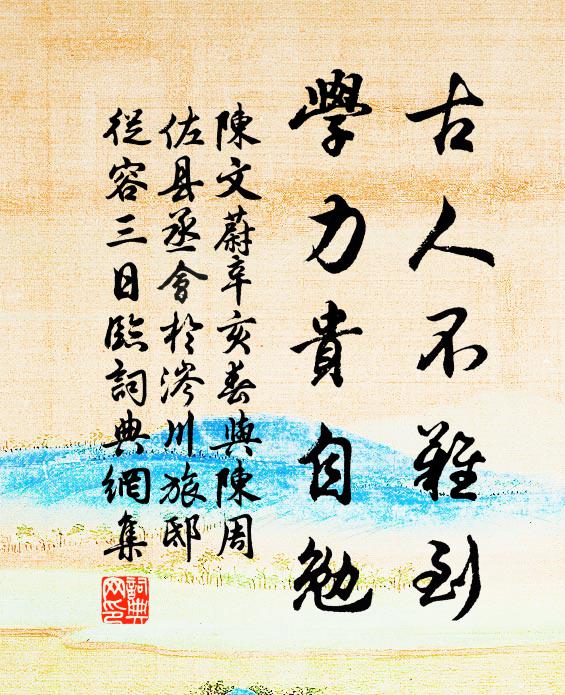 古人不難到
學力貴自勉
陳文蔚辛亥春與陳周
佐县丞會於涔川旅邸
從容三日臨詞典網集
詞典
网印